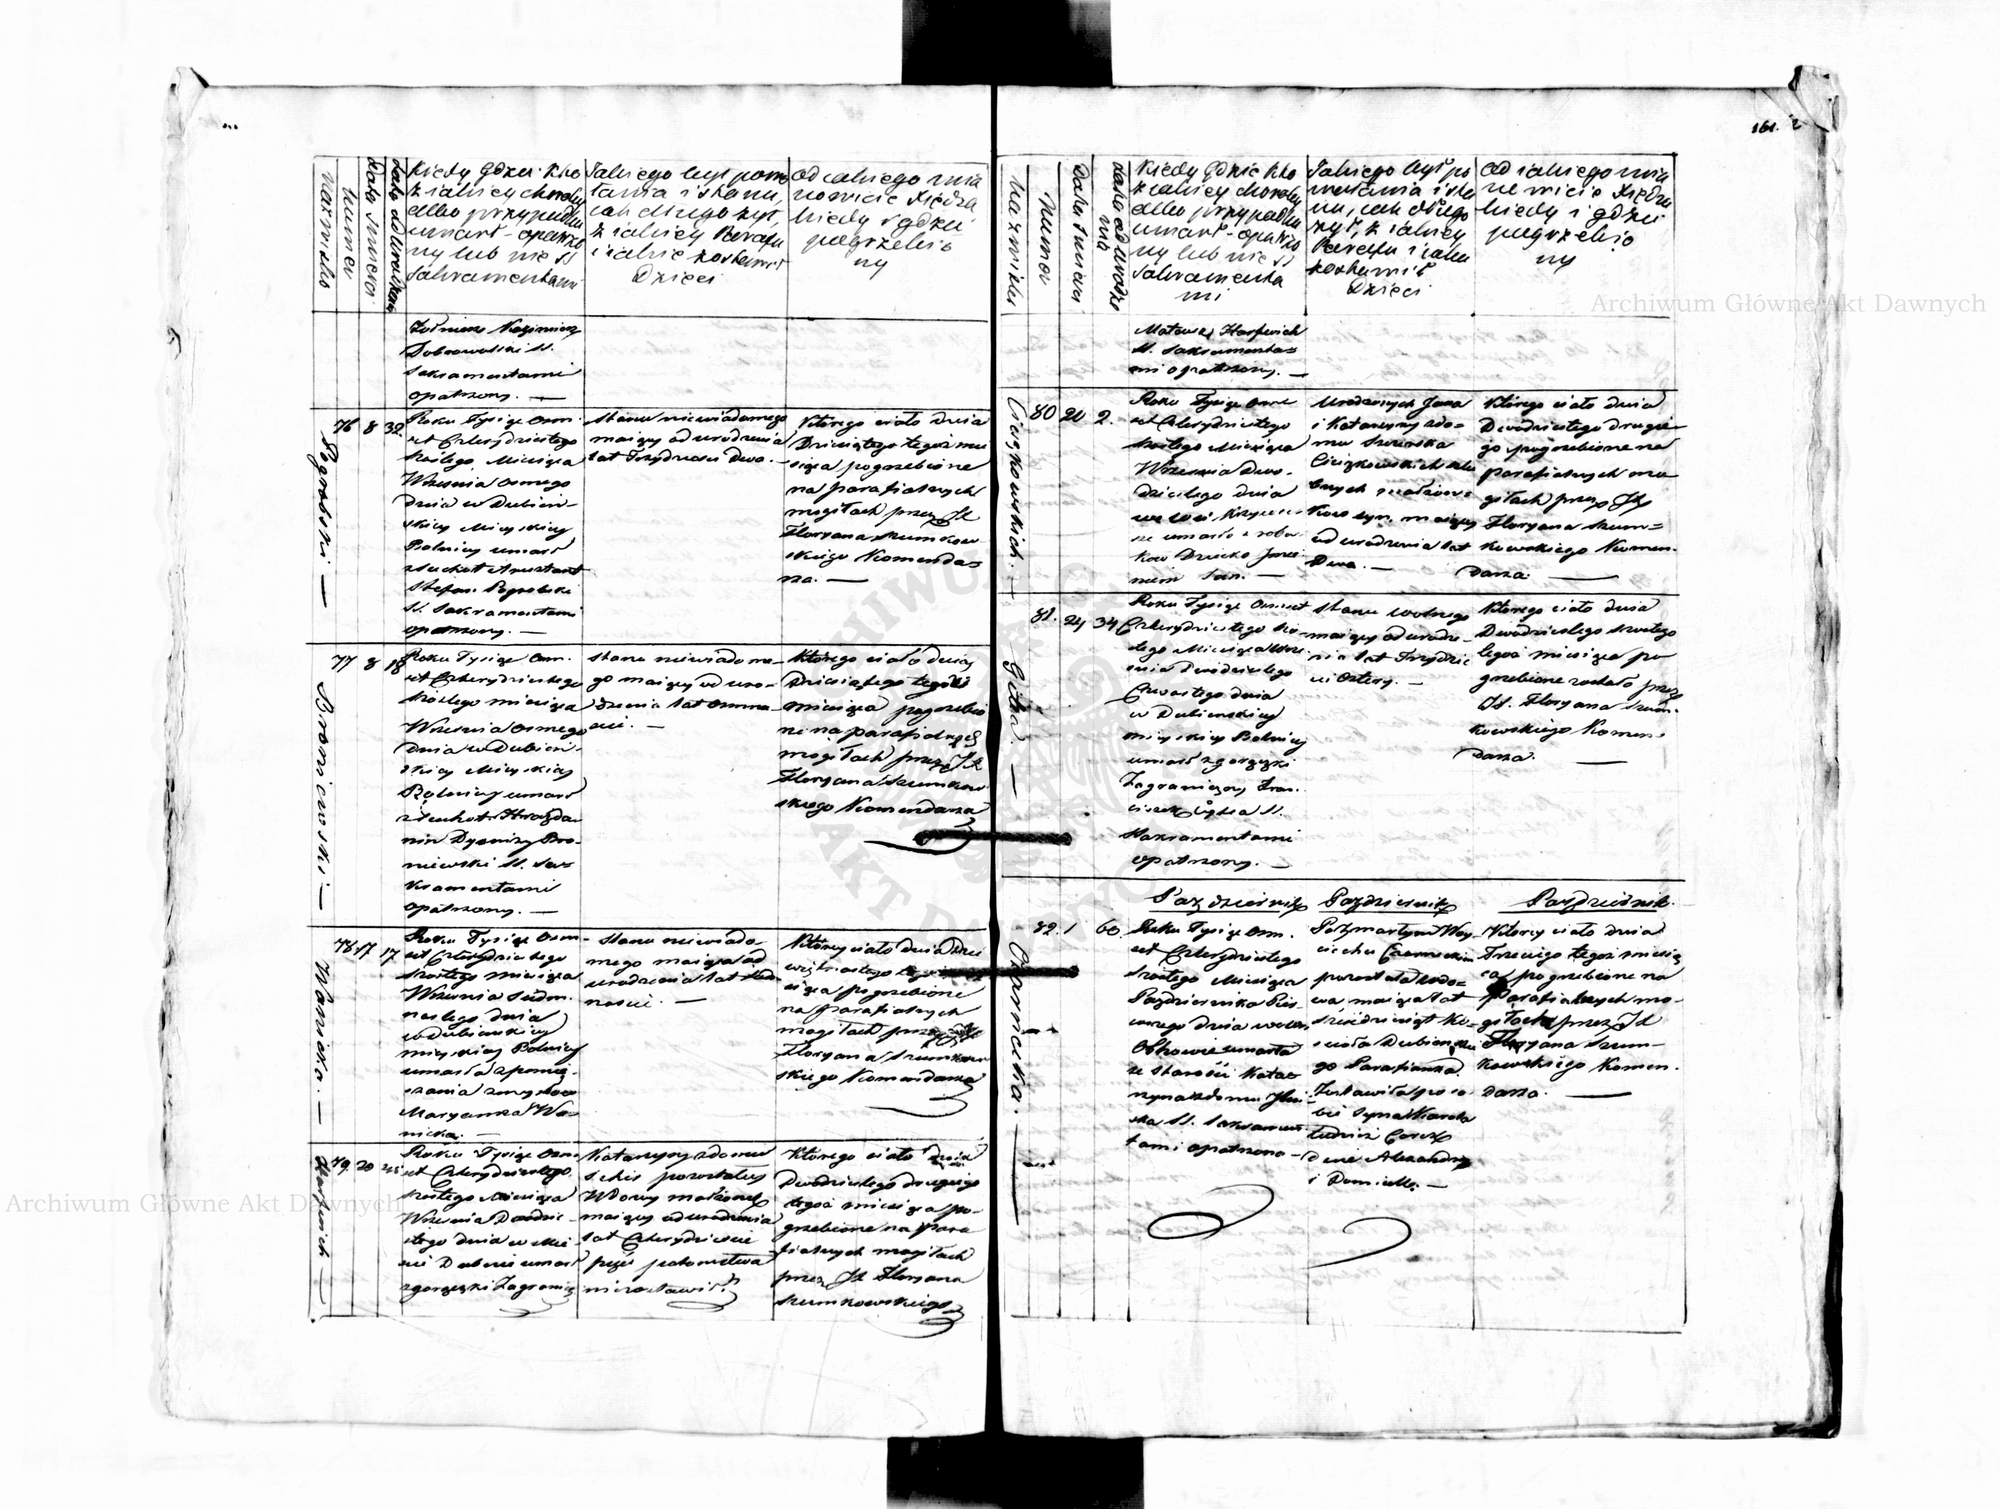 161. 2
Nazwisko
Numer
Data Smierci
Kiedy Gdzie Kto
z iakiey choroby
albo przypadku
umarł - opatrzo
ny lub nie SS
Sakramentami
Jakiego był powo
łania i stanu,
iak długo żył,
z iakiey Parafii
i iakie zostawił
Dzieci
Od iakiego mia
nowicie Xiędza
kiedy i gdzie
pogrzebio
ny
Żołnierz Kazimierz
Dobrowolski SS.
Sakramentami
opatrzony. —
Pogrobski —
76 8 32
Roku Tysiąc Osm-
set Czterydziestego
szóstego Miesiąca
Września Osmego
dnia w Dubień-
skiey Mieyskiey
Bolnicy umarł
z suchot Aresztant
Stefan Pogrobski
SS. Sakramentami
opatrzony. —
Stanu niewiadomego
maiący od urodzenia
lat Trzydzieści Dwa. —
Którego ciało dnia
Dziesiątego tegoż mie
siąca pogrzebione
na parafialnych
mogiłach przez JX
Floryana Szumkow-
skiego Komenda-
rza. —
Broniewski —
77 8 18
Roku Tysiąc Osm-
set Czterydziestego
szóstego miesiąca
Września Osmego
dnia w Dubień-
skiey Mieyskiey
Bolnicy umarł
z suchot
Dyonizy Bro-
niewski SS. Sa-
kramentami
opatrzony. —
Stanu niewiadome-
go maiący od uro-
dzenia lat Osmna-
ście. —
Którego ciało dnia
Dziesiątego tegoż
miesiąca pogrzebio
ne na parafialnych
mogiłach przez JX
Floryana Szumkow-
skiego Komendarza
Wanicka. —
78 17 17
Roku Tysiąc Osm-
set Czterydziestego
szóstego miesiąca
Września Siedm-
nastego dnia
w Dubieńskiey
mieyskiey Bolnicy
umarła z pomię-
szania zmysłów
Maryanna Wa-
nicka. —
Stanu niewiado-
mego maiąca od
urodzenia lat Siedm-
naście. —
Którey ciało dnia Dzie
więtnastego
siąca pogrzebione
na parafialnych
mogiłach przez
Floryana Szumkow-
skiego Komendarza
79 20 45
Roku Tysiąc Osm-
set Czterydziestego
szóstego Miesiąca
Września Dwudzie-
stego dnia w Mie-
ście Dubnie umarł
z gorączki Zagranicz
Katarzyny z domu
pozostałey
Wdowy małżonek
maiący od urodzenia
lat Czterydzieści
pięć potomstwa
niezostawił.
Którego ciało dnia
Dwudziestego drugiego
tegoż miesiąca po-
grzebione na para
fialnych mogiłach
przez JX Floryana
Szumkowskiego
Nazwisko
Numer
Data Smierci
Lata od urodze
nia
Kiedy Gdzie Kto
z iakiey choroby
albo przypadku
umarł - opatrzo
ny lub nie SS
Sakramenta
mi
Jakiego był po
wołania i sta
nu, iak długo
żył, z iakiey
Parafii i iakie
zostawił
Dzieci
Od iakiego mia
nowicie Xiędza
kiedy i gdzie
pogrzebio
ny
Mateusz
SS. Sakramenta-
mi opatrzony. —
Ciążkowskich. —
80 20 2.
Roku Tysiąc Osm-
set Czterydziestego
szóstego Miesiąca
Września Dwu-
dziestego dnia
we wsi
umarło z roba-
ków Dziecko Imie-
niem Jan. —
Urodzonych Jana
i Katarzyny z do-
mu
Ciążkowskich ślu
bnych małżon-
ków syn, maiący
od urodzenia lat
Dwa. —
Którego ciało dnia
Dwudziestego drugie-
go pogrzebione na
parafialnych mo
giłach przez JX
Floryana Szum-
kowskiego Komen-
darza. —
81. 24 34
Roku Tysiąc Osmset
Czterydziestego szó-
stego Miesiąca Wrze-
śnia Dwudziestego
Czwartego dnia
w Dubieńskiey
mieyskiey Bolnicy
umarł z gorączki
Zagraniczny Fran-
ciszek SS.
Sakramentami
opatrzony. —
Stanu wolnego
maiący od urodze-
nia lat Trzydzie
ści Cztery. —
Którego ciało dnia
Dwudziestego szóstego
tegoż miesiąca po
grzebione zostało przez
JX. Floryana Szum-
kowskiego Komen-
darza. —
Październik
Październik
Październik.
Czarnecka. —
82. 1 60
Roku Tysiąc Osm-
set Czterydziestego
szóstego Miesiąca
Października Pier-
wszego dnia we wsi
umarła
ze starości Kata-
rzyna z domu
SS. Sakramen-
tami opatrzona —
Po zmarłym Woy-
ciechu Czarneckim
pozostała wdo-
wa maiąca lat
sześćdziesiąt Ko-
ścioła Dubieńskie
go Parafianka.
Zostawiła po so-
bie Syna Karola
tudzież Córki
Dwie Alexandrę
i Domicellę. —
Którey ciało dnia
Trzeciego tegoż miesią
ca pogrzebione na
Parafialnych mo-
giłach przez JX
Floryana Szum-
kowskiego Komen-
darza. —
Archiwum Główne Akt Dawnych
Archiwum Główne Akt Dawnych